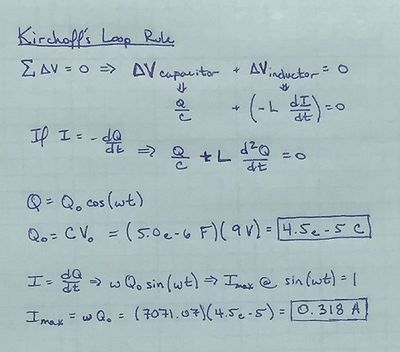 Kirchoff's Loop Rule
ΣΔV = 0 ⇒ ΔV capacitor + ΔV inductor = 0
⇓ ⇓
Q/C + (-L dI/dt) = 0
If I = -dQ/dt ⇒ Q/C + L d²Q/dt = 0
Q = Q₀ cos(ωt)
Q₀ = CV₀ = (5.0e-6 F)(9V) = 4.5e-5 C
I = dQ/dt ⇒ ωQ₀ sin(ωt) ⇒ Imax @ sin(ωt) = 1
Imax = ωQ₀ = (7071.07)(4.5e-5) = 0.318 A